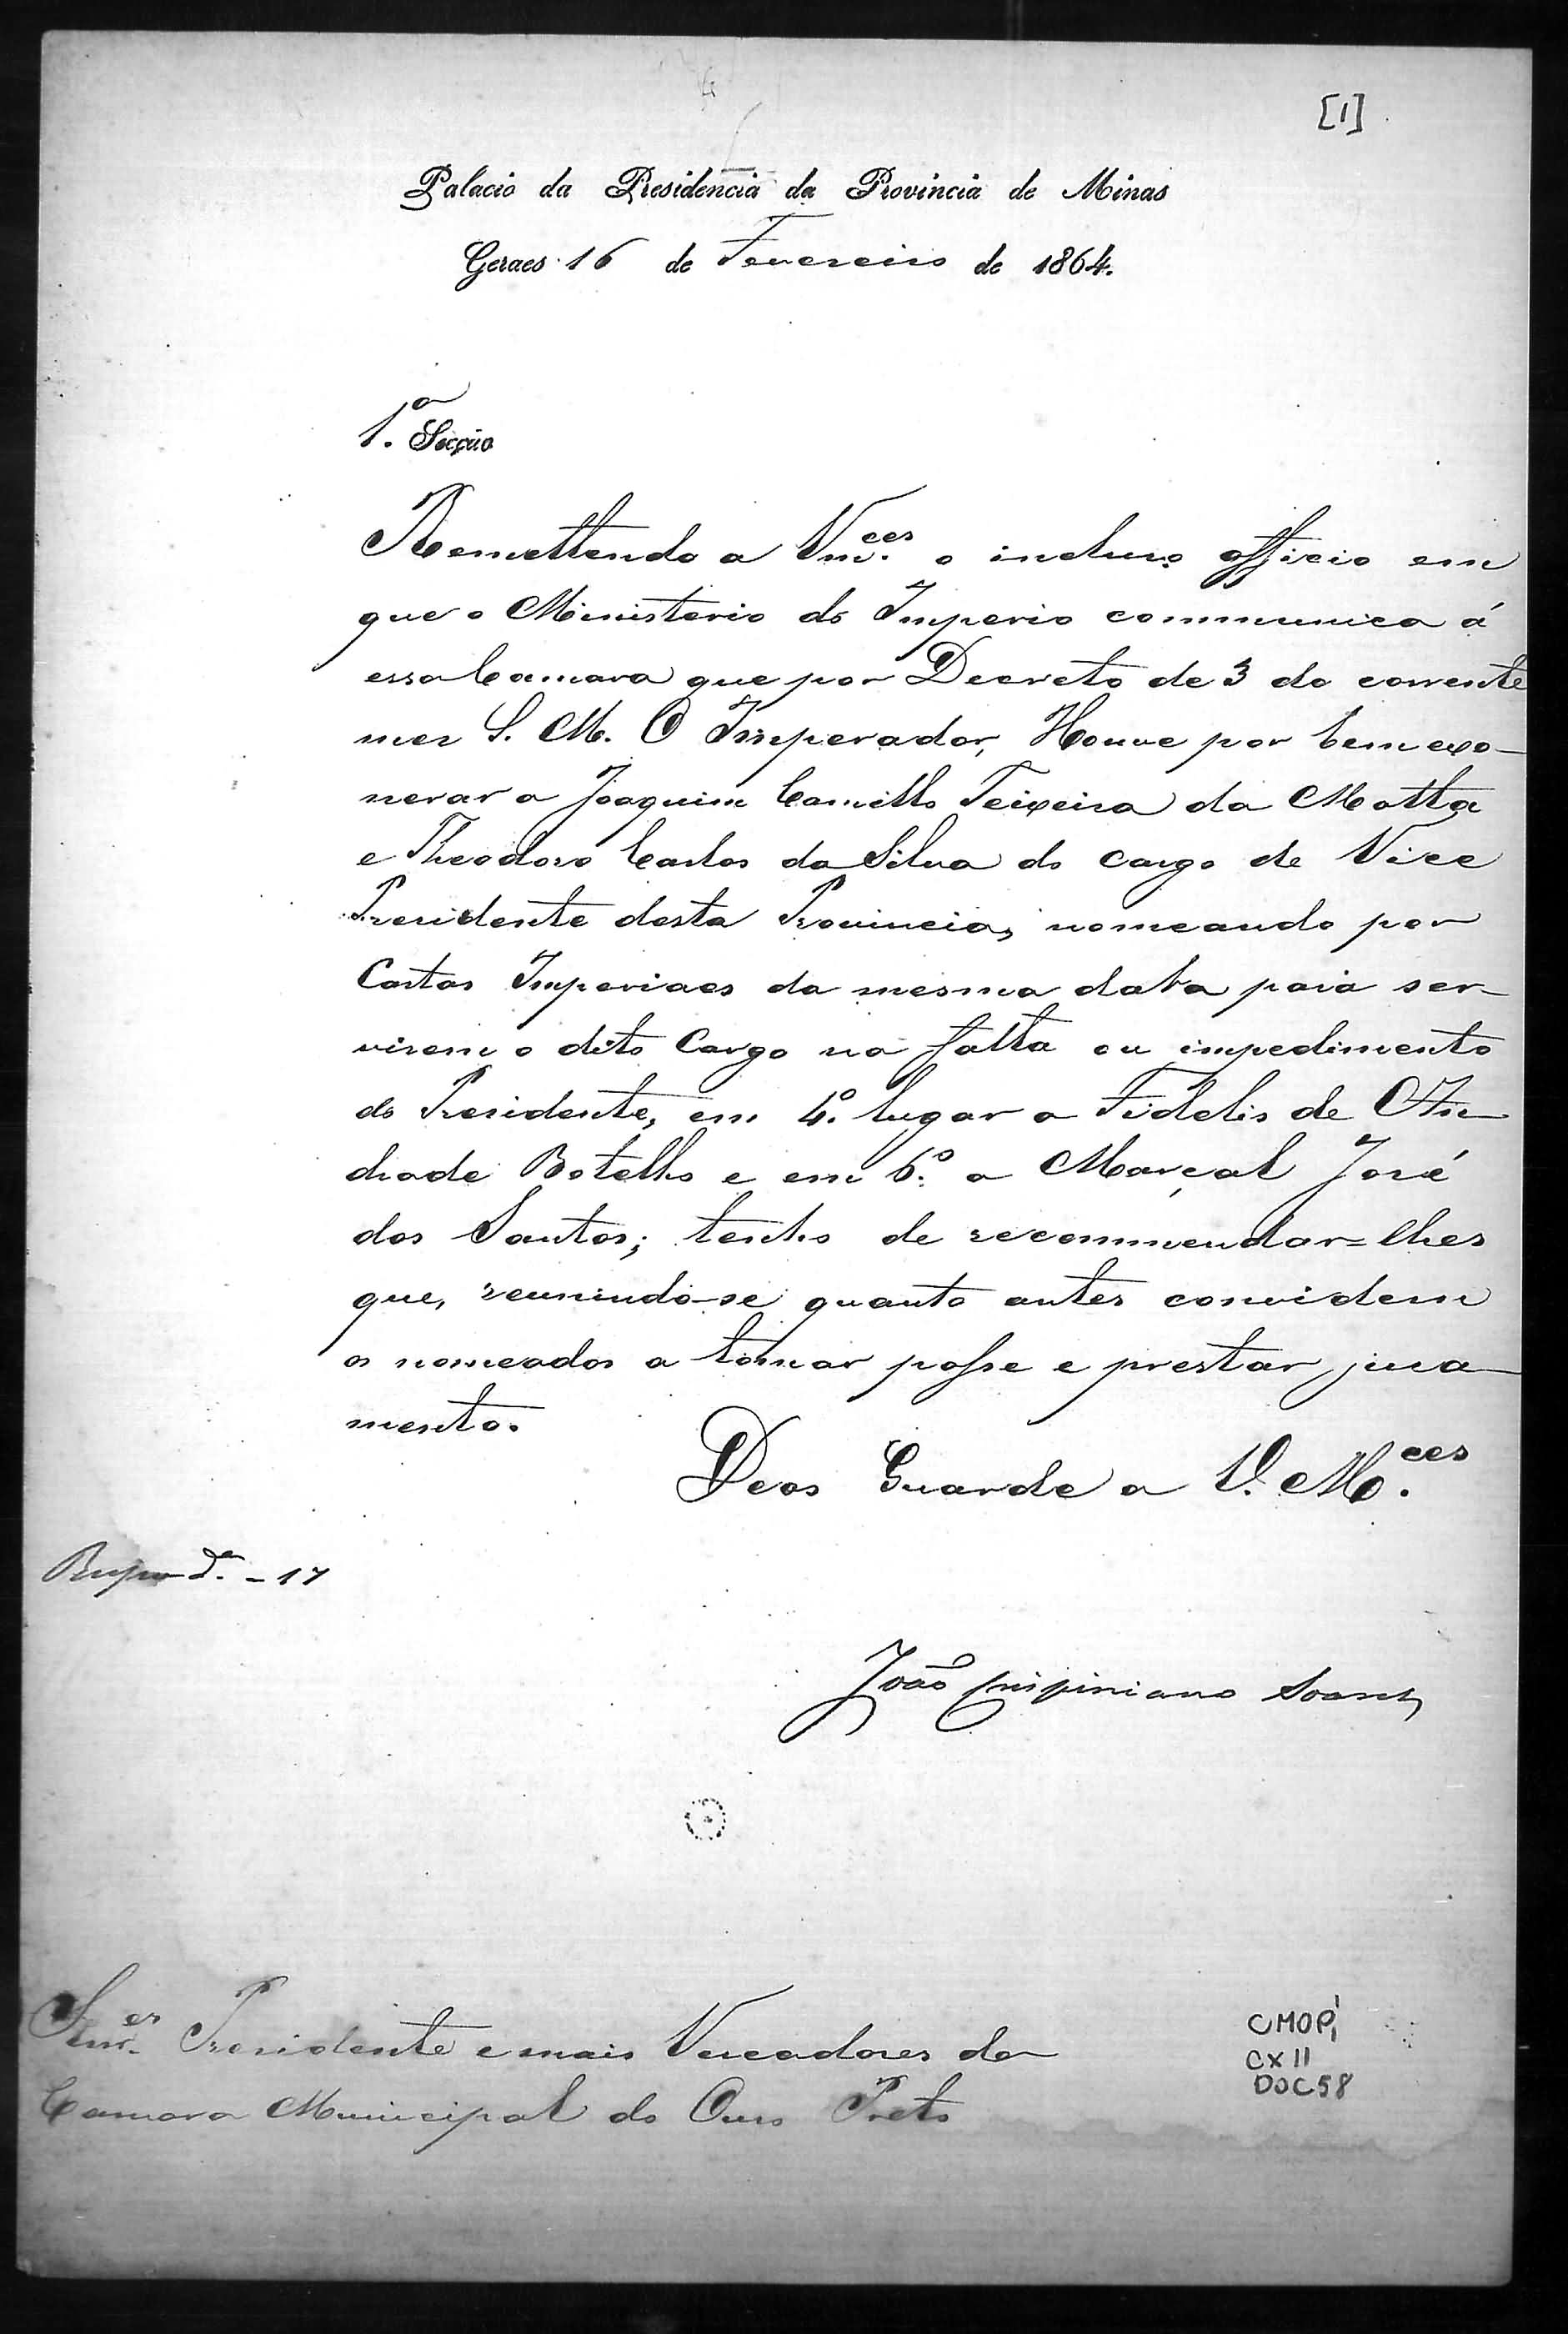 [1]
Palacio da Presidencia da Provincia de Minas
Geraes 16 de Fevereiro de 1864.
1.ª Secção
Remettendo a Vm.ces o incluso officio em
que o Ministerio do Imperio communica á
essa Camara que por Decreto de 3 do corrente
mez S. M. O Imperador, Houve por bem exo-
nerar a Joaquim Camillo Teixeira da Motta
e Theodoro Carlos da Silva do cargo de Vice
Presidente desta Provincia, nomeando por
Cartas Imperiaes da mesma data para ser-
virem o dito Cargo na falta ou impedimento
do Presidente, em 4.º lugar a Fidelis de An-
drade Botelho e em 6.º a Marçal José
dos Santos; tenho de recommendar=lhes
que, reunindo-se quanto antes convidem
os nomeados a tomar posse e prestar jura-
mento.
Deos Guarde a V. M.ces
17
João Crispiniano Soares
Snr.es Presidente e mais Vereadores da
Camara Municipal do Ouro Preto
CMOP,
CX 11
DOC 58